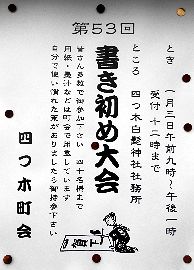 第53回
書き初め大会
とき 一月三日午前九時〜午後一時
受付 十二時まで
ところ 四つ木白髭神社社務所
皆さん多数で御参加下さい 四十名様まで
用紙・墨汁などは町会で用意しています
自分で使い慣れた筆がありましたら御持参下さい
四つ木町会